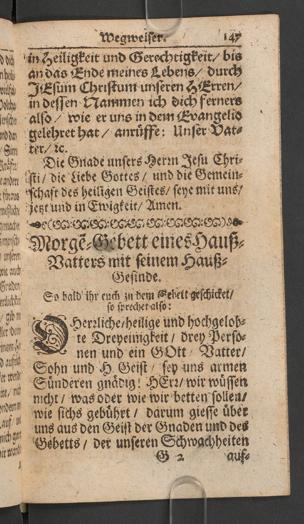 Wegweiser. 147
in Heiligkeit und Gerechtigkeit/ bis
an das Ende meines Lebens/ durch
JEsum Christum unseren HErren/
in dessen Nammen ich dich ferners
also/ wie er uns in dem Evangelio
gelehret hat/ anrüffe: Unser Vat-
ter/ ꝛc.
Die Gnade unsers Herrn Jesu Chri-
sti/ die Liebe Gottes/ und die Gemein-
schaft des heiligen Geistes/ seye mit uns/
jetzt und in Ewigkeit/ Amen.
Morgē-Gebett eines Hauß-
Vatters mit seinem Hauß-
Gesinde.
So bald ihr euch zu dem Gebett geschicket/
so sprechet also:
O Herrliche/ heilige und hochgelob-
te Dreyeinigkeit/ drey Perso-
nen und ein GOtt/ Vatter/
Sohn und H. Geist/ sey uns armen
Sünderen gnädig! HErr/ wir wüssen
nicht/ was oder wie wir betten sollen/
wie sichs gebührt/ darum giesse über
uns aus den Geist der Gnaden und des
Gebetts/ der unseren Schwachheiten
G 2 auf-